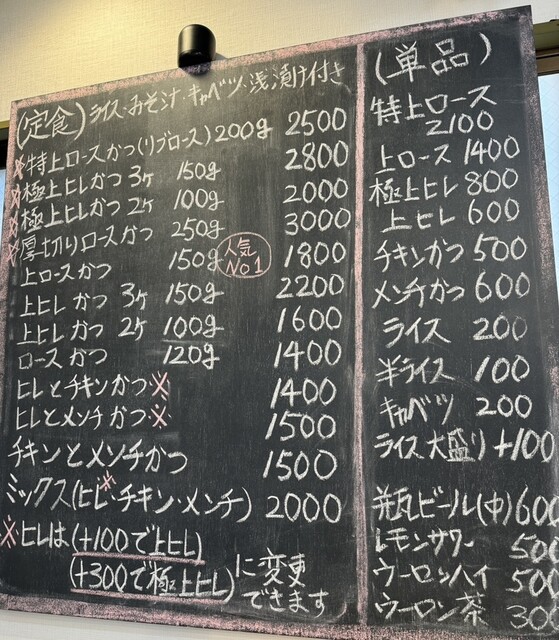 (定食) ライス・みそ汁・キャベツ・浅漬け付き
※特上ロースかつ(リブロース)200g 2500
※極上ヒレかつ 3ヶ 150g 2800
※極上ヒレかつ 2ヶ 100g 2000
※厚切りロースかつ 250g 3000
上ロースかつ 150g 人気No1 1800
上ヒレかつ 3ヶ 150g 2200
上ヒレかつ 2ヶ 100g 1600
ロースかつ 120g 1400
ヒレとチキンかつ※ 1400
ヒレとメンチかつ※ 1500
チキンとメンチかつ 1500
ミックス(ヒレ※・チキン・メンチ) 2000
※ヒレは(+100で上ヒレ)
(+300で極上ヒレ)に変更
できます
(単品)
特上ロース
2100
上ロース 1400
極上ヒレ 800
上ヒレ 600
チキンかつ 500
メンチかつ 600
ライス 200
半ライス 100
キャベツ 200
ライス大盛り +100
瓶ビール(中) 600
レモンサワー 500
ウーロンハイ 500
ウーロン茶 300